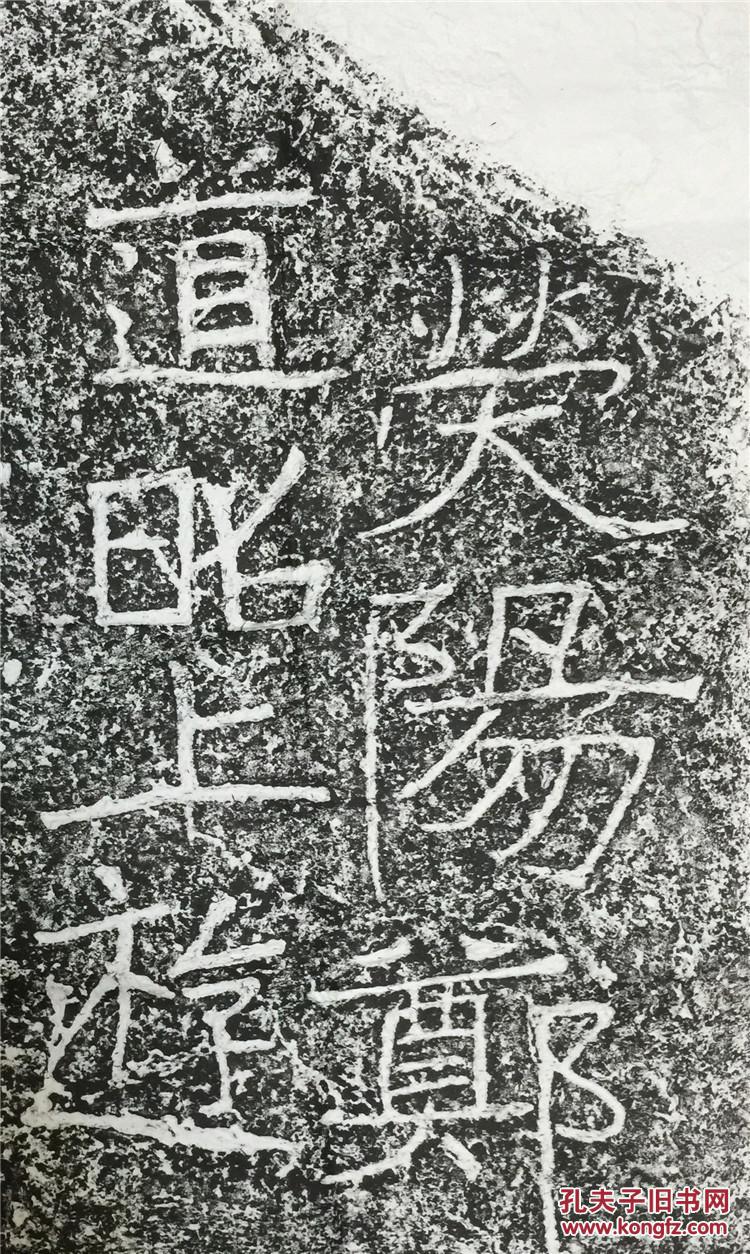 熒陽鄭
道昭上遊
孔夫子旧书网
www.kongfz.com